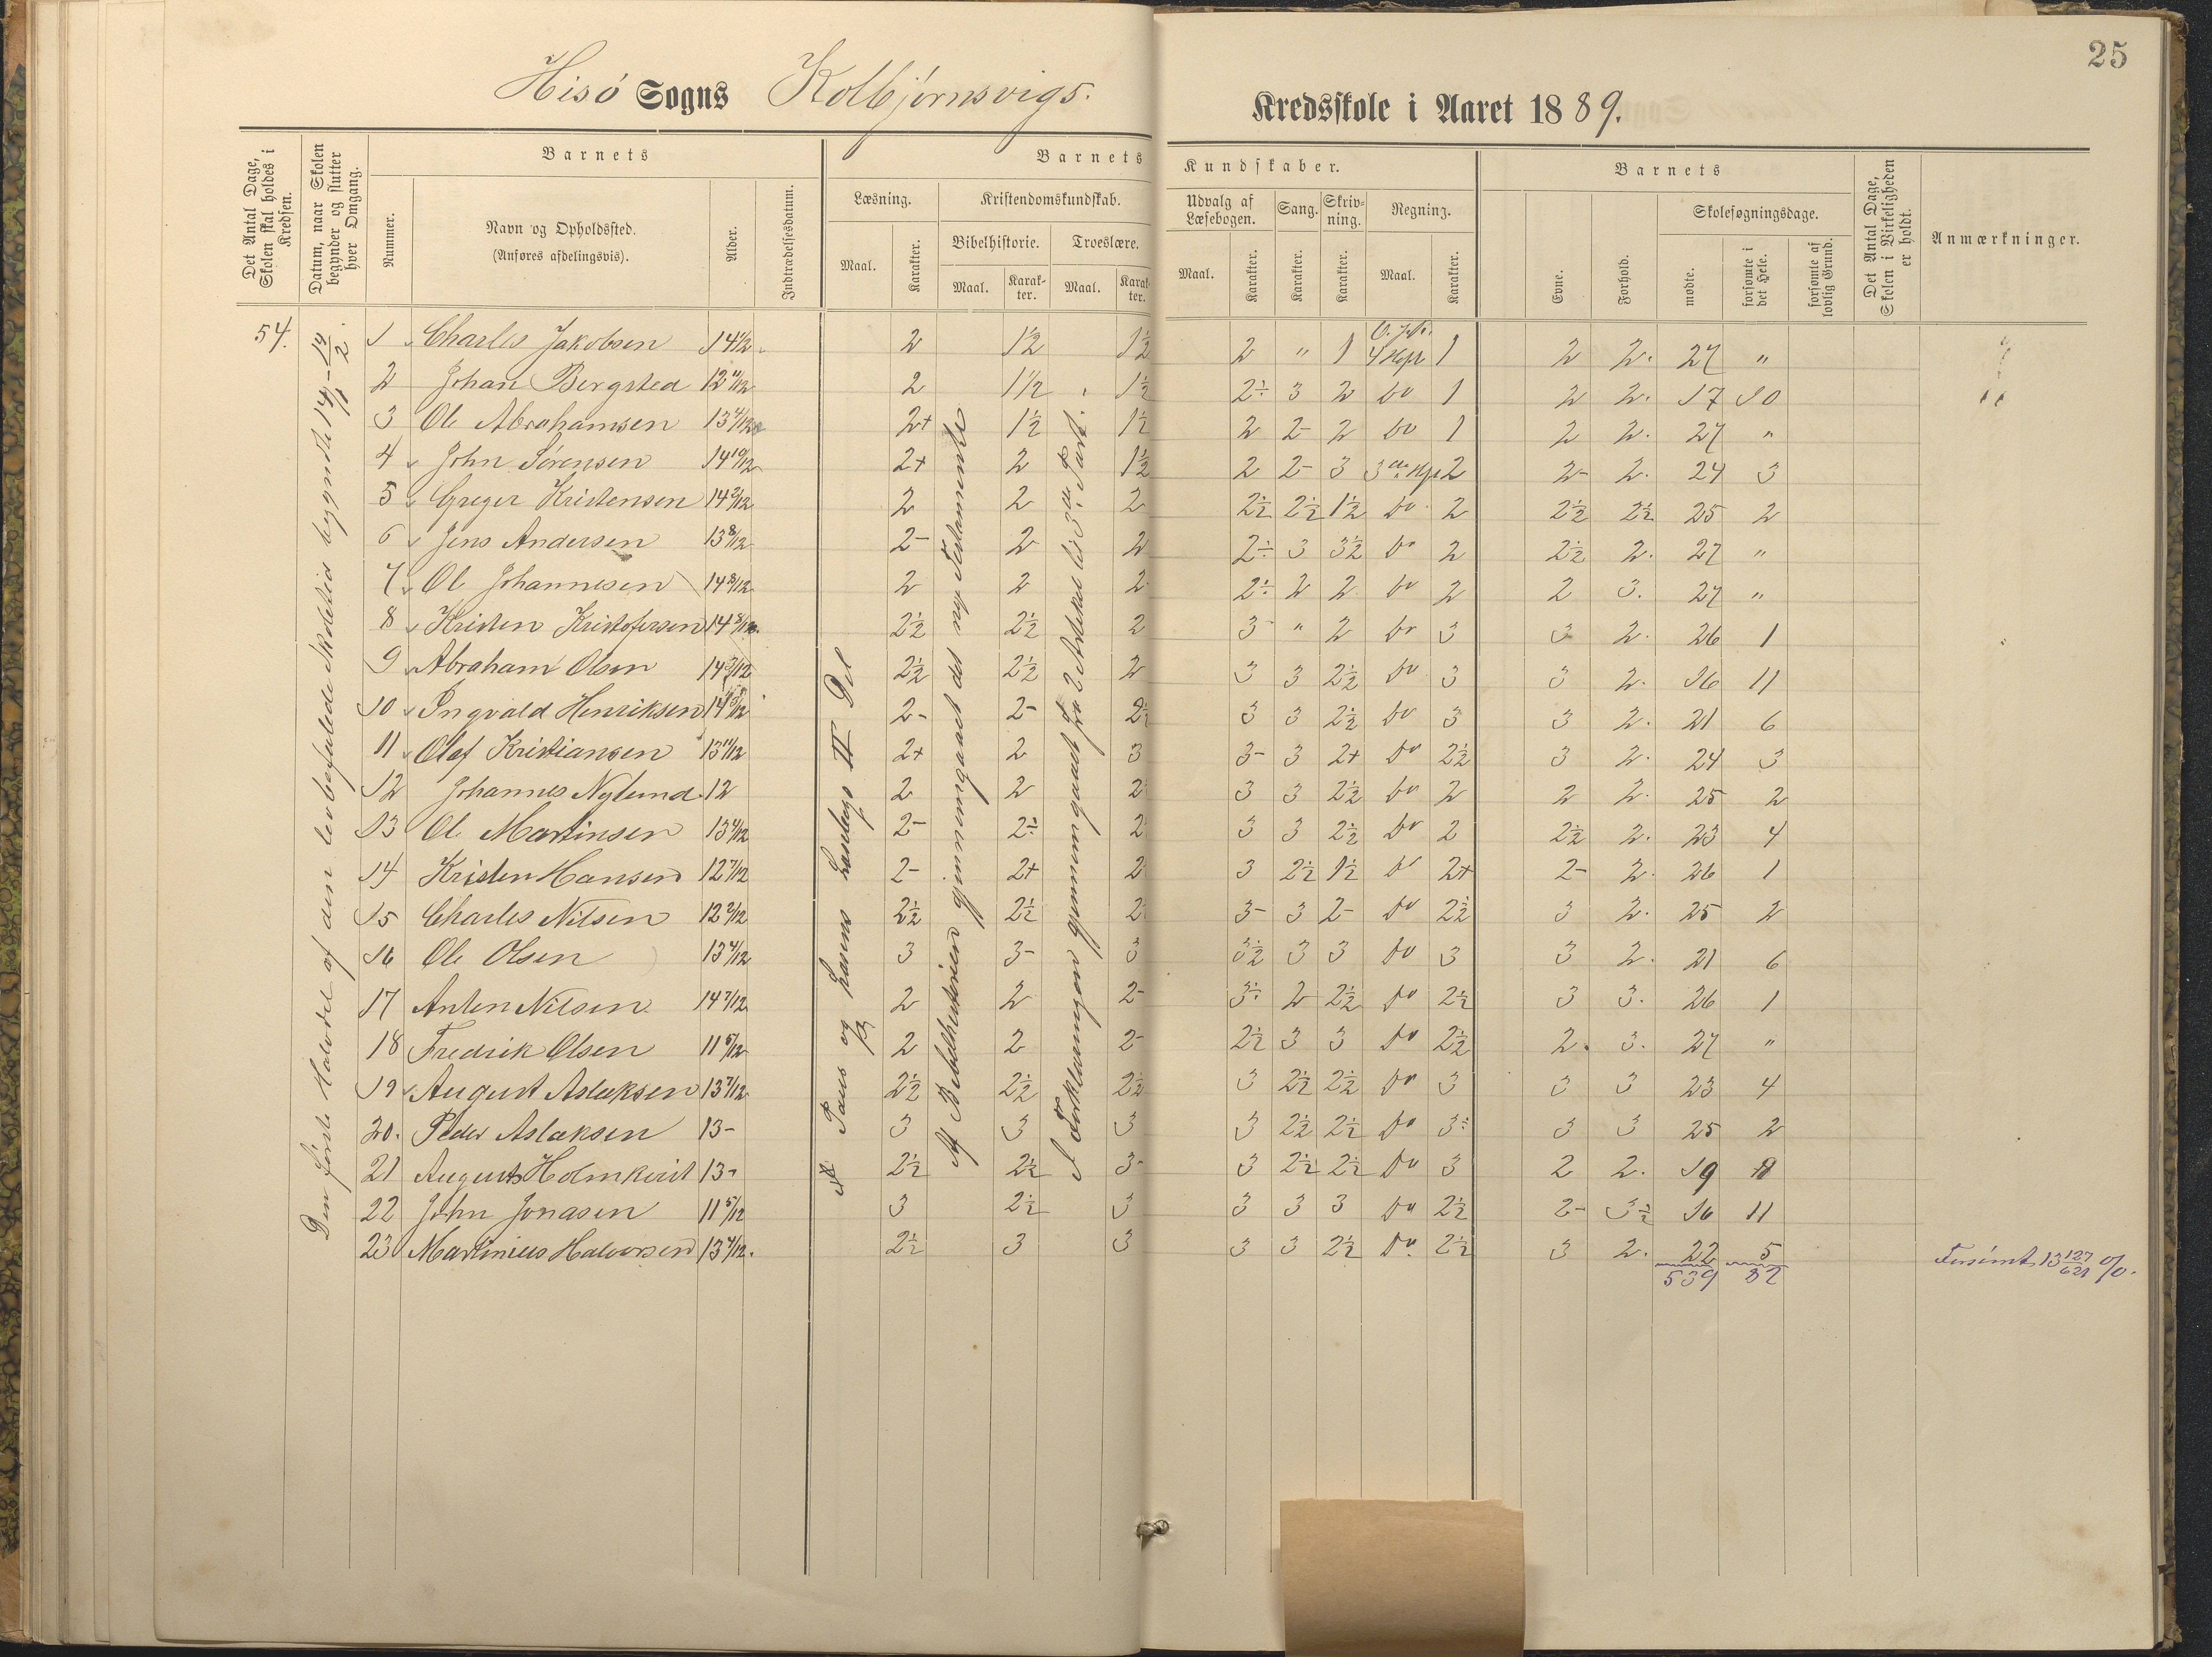 25
Hisö Sogns Kolbjørnsvigs. Kredsskole i Aaret 1889.
Det Antal Dage, Skolen skal holdes i Kredsen.
Datum, naar Skolen begynder og slutter hver Omgang.
Barnets
Nummer.
Navn og Opholdssted.
(Anføres afdelingsvis).
Alder.
Indtrædelsesdatum.
Barnets Kundskaber.
Læsning.
Maal.
Karakter.
Kristendomskundskab.
Bibelhistorie.
Maal.
Karakter.
Troeslære.
Maal.
Karakter.
Udvalg af Læsebogen.
Maal.
Karakter.
Sang.
Karakter.
Skrivning.
Karakter.
Regning.
Maal.
Karakter.
Barnets
Evne.
Forhold.
Skolesøgningsdage.
mødte.
forsømte i det Hele.
forsømte af lovlig Grund.
Det Antal Dage, Skolen i Virkeligheden er holdt.
Anmærkninger.
54.
Den første Halvdel af den lovbefalede Skoletid begyndte 14/1 - 14/2.
Paus og Lassens Læsebogs II Del
Af Bibelhistorien gjennemgaaet det nye Testamente
I Forklaringen gjennemgaaet fra 2 Artikel til 3die Part.
1 Charles Jakobsen 2 1½ 1½ 2 " 1 1 2 2. 27 "
2 Johan Bergsted 12 11/12 2 1½ 1½ 2÷ 3 2 do 1 2 2. 17 10
3 Ole Abrahamsen 13 4/12 2+ 1½ 1½ 2 2- 2 do 1 2 2. 27 "
4 John Sørensen 14 10/12 2+ 2 1½ 2 2- 3 2 2- 2. 24 3
5 Greger Kristensen 14 2/12 2 2 2 2½ 2½ 1½ do 2 2½ 2½ 25 2
6 Jens Andersen 13 8/12 2- 2 2 2÷ 3 3½ do 2 2½ 2. 27 "
7 Ole Johannesen 14 8/12 2 2 2 2÷ 2 2 do 2 2 3. 27 "
8 Kristen Kristofersen 14 8/12 2½ 2½ 2 3- " 2 do 3 3 2. 26 1
9 Abraham Olsen 14 3/12 2½ 2½ 2 3 3 2½ do 3 3 2. 16 11
10 Ingvald Henriksen 2- 2- 2½ 3 3 2½ do 3 3 2. 21 6
11 Olaf Kristiansen 13 11/12 2+ 2 3 3- 3 2+ do 2½ 3 2. 24 3
12 Johannes Nylund 12 2 2 2 3 3 2½ do 2 2 2. 25 2
13 Ole Martinsen 13 4/12 2- 2÷ 2 3 3 2½ do 2 2½ 2. 23 4
14 Kristen Hansen 12 7/12 2- 2+ 2 3 2½ 1½ do 2+ 2- 2. 26 1
15 Charles Nilsen 12 2/12 2½ 2½ 2 3- 3 2- do 2½ 3 2. 25 2
16 Ole Olsen 13 4/12 3 3- 3 3½ 3 3 do 3 3 2. 21 6
17 Anten Nilsen 14 7/12 2 2 2- 3÷ 2 2½ do 2½ 3 3. 26 1
18 Fredrik Olsen 11 5/12 2 2 2- 2½ 3 3 do 2½ 2. 3. 27 "
19 August Aslaksen 13 7/12 2½ 2½ 2½ 3 2½ 2½ do 3 3 3 23 4
20. Peder Aslaksen 13- 3 3 3 3 2½ 2½ do 3÷ 3 3 25 2
21 August Holmkvist 13- 2½ 2½ 3- 3 2½ 2½ do 3 2 2. 19 8
22 John Jonasen 11 5/12 3 2½ 3 3 3 3 do 2½ 2- 3½ 16 11
23 Martinius Halvorsen 13 4/12. 2½ 3 3 3 3 2½ do 2½ 3 2. 22 5
539 82
Forsømt 13 127/621 %.